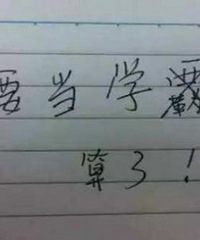 要当学
算了！